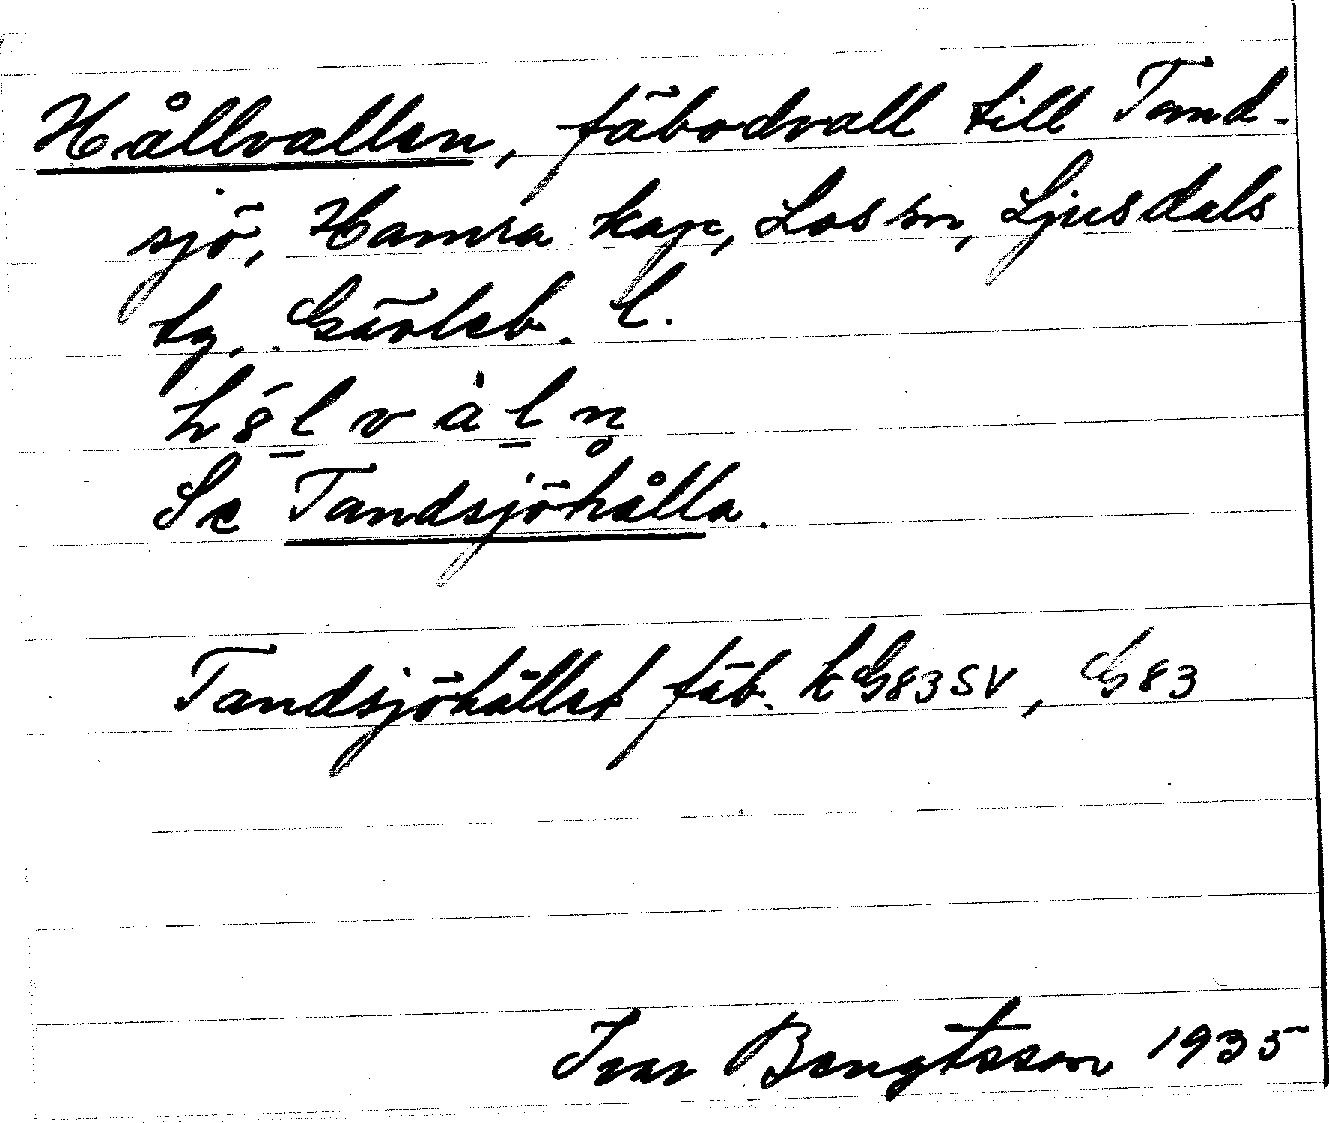 Hållvallen, fäbodvall till Tand-
sjö, Hamra kap, Los sn, Ljusdals
tg. Gävleb. l.
Se Tandsjöhålla.
Tandsjöhållet fäb. kG83SV, G83
Ivar Bengtsson 1935